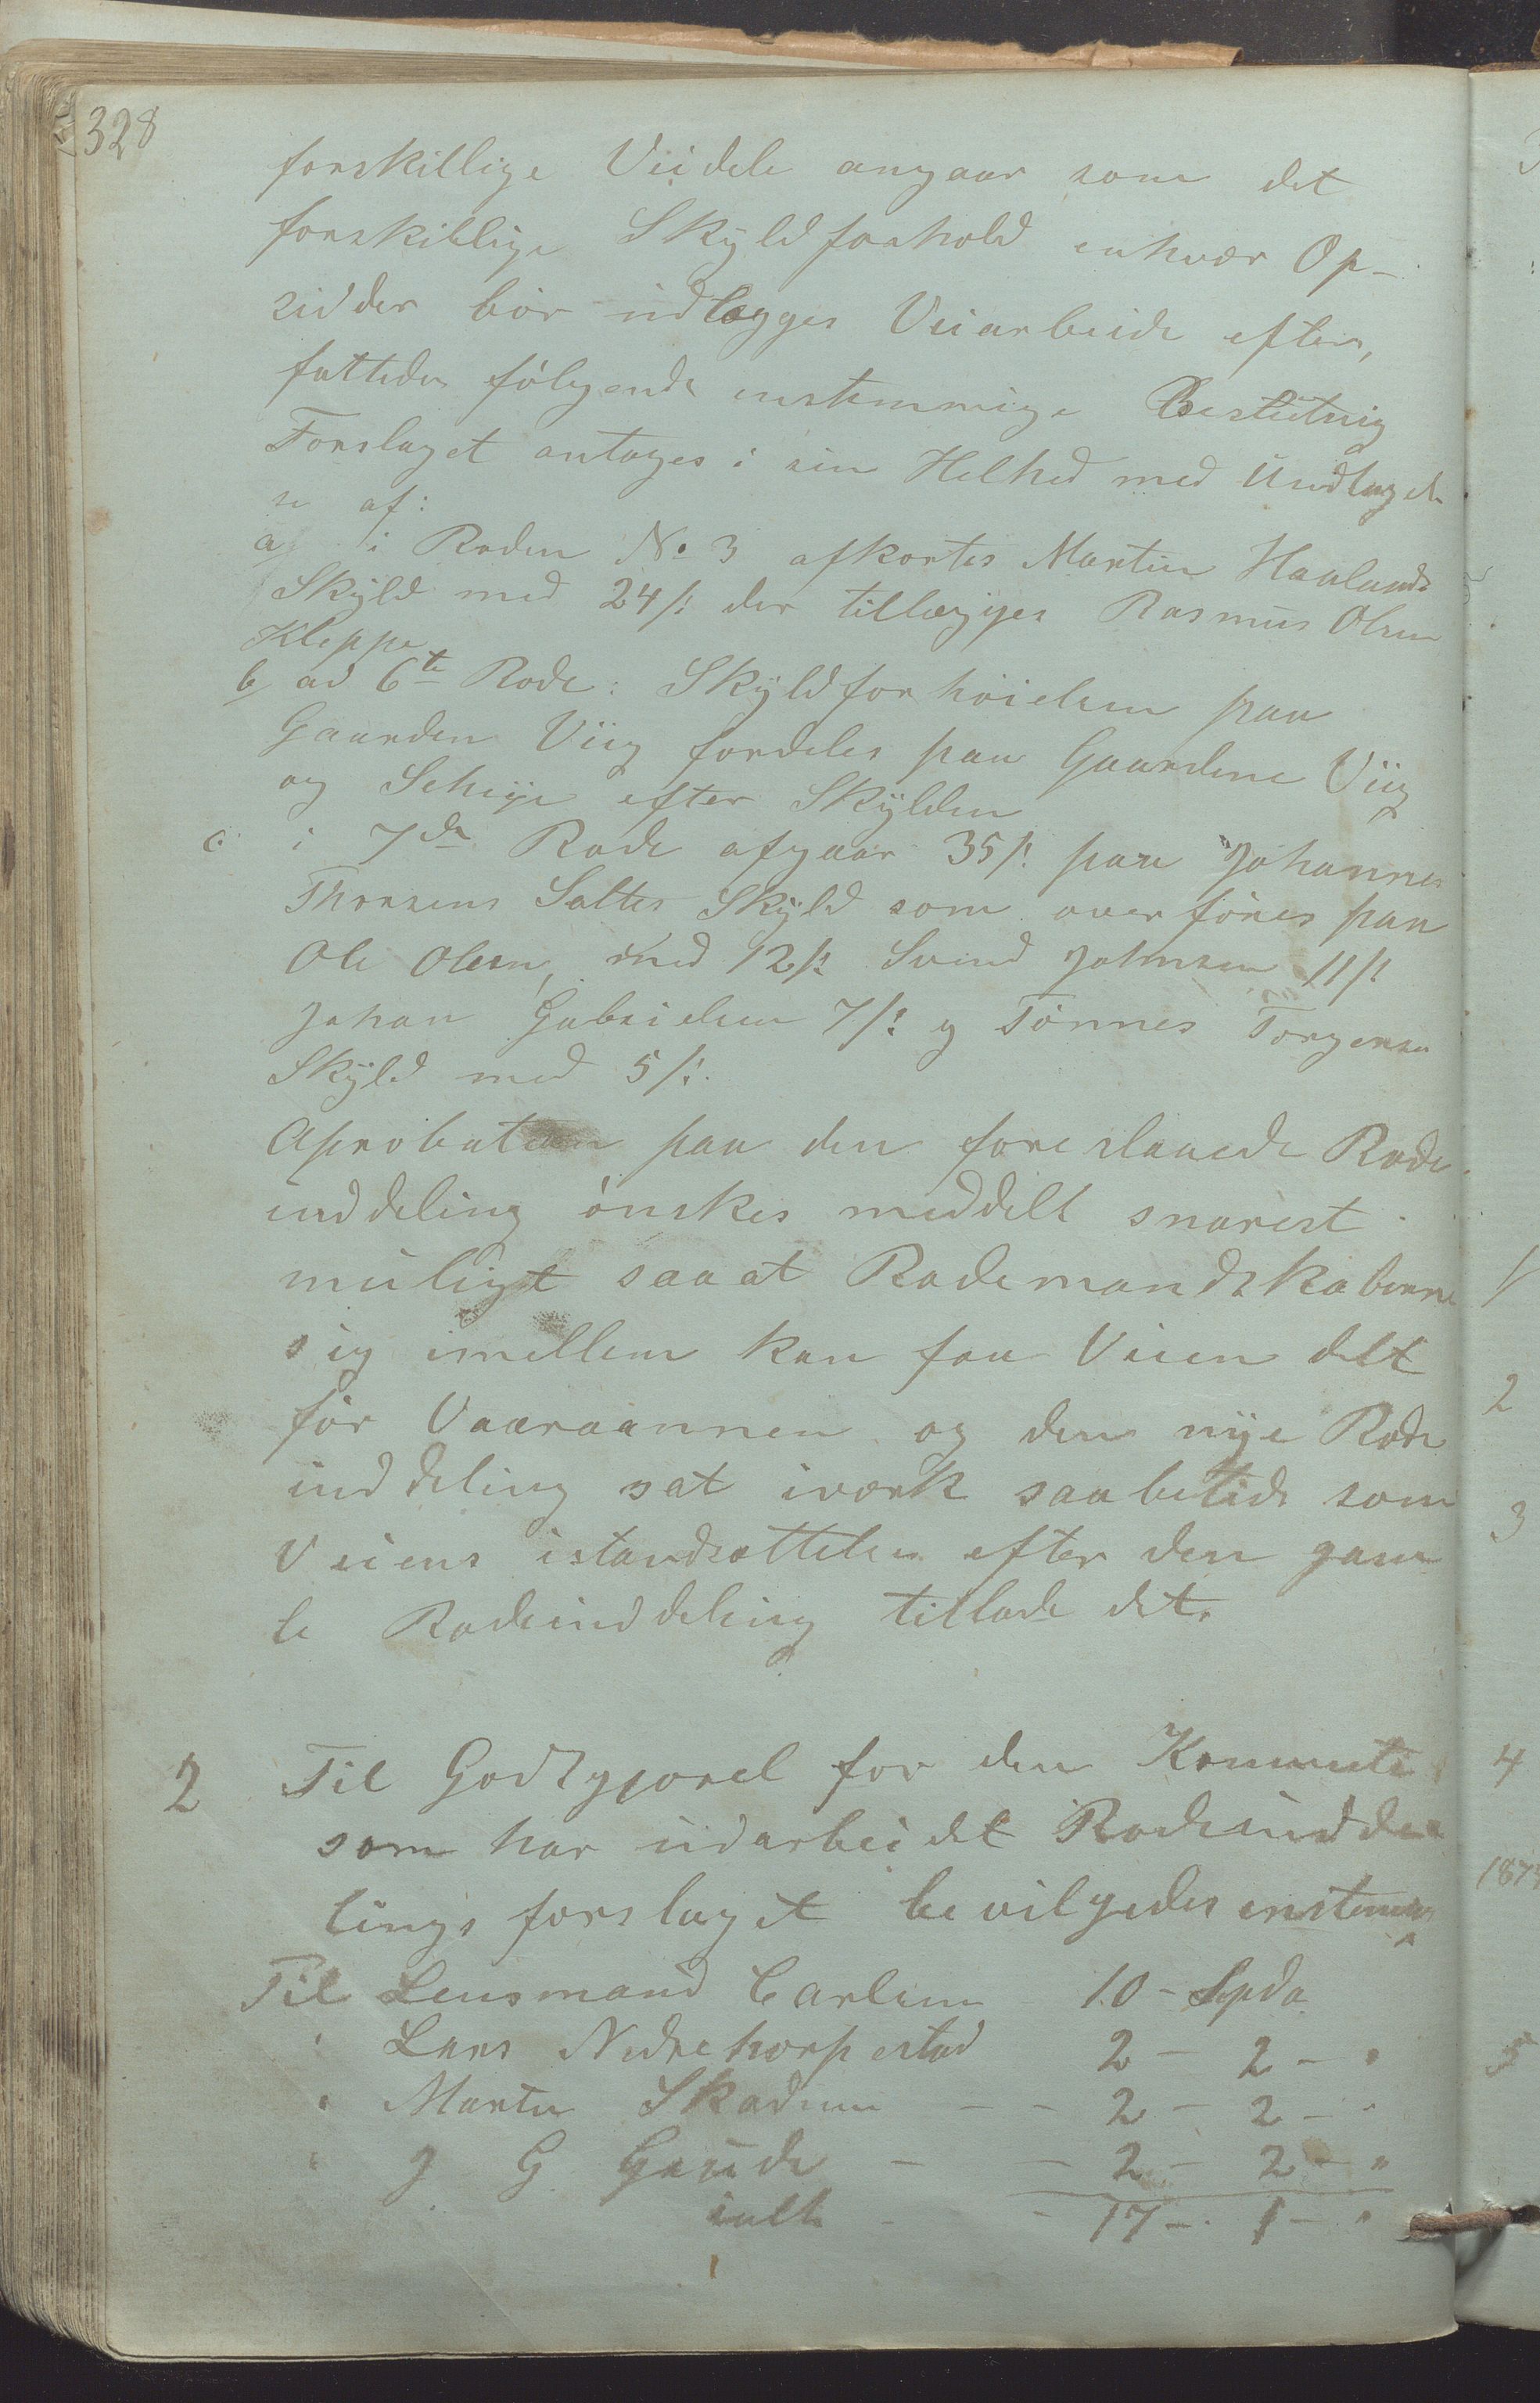 328
forskillige Veidele angaar som det
forskillige Skyldforhold enhver Op-
sidder bør udlægges Veiarbeide efter,
fattedes følgende enstemmige Beslutnig
Forslaget antages i sin Helhed med Undtagel
se af:
a/ i Roden No. 3 afkortes Martin Haalands
Skyld med 24 /: der tillægges Rasmus Olsen
Kleppe
b/ ad 6te Rode: Skyldforhøielsen paa
Gaarden Viig fordeles paa Gaardene Viig
og efter Skylden
c. i 7de Rode afgaar 35 /: paa Johannes
Thorsens Saltes Skyld som overføres paa
Ole Olsen, med 12 /: Svend Johnsen 11 /:
Johan Gabrielsen 7 /: og Tønnes Torgersen
Skyld med 5 /:
Aprobation paa den foreslaaede Rode
inddeling ønskes meddelt snarest
muligt saaat Rodemandskaberne
sig imellem kan faa Veien delt
før Vaaraannen og den nye Rode
inddeling sat iværk saabetids som
Veiens istandsættelse efter den gam
le Rodeinddeling tillade det.
2 Til Godtgjørel for den Kommite
som har udarbeidet Rodeindde
lings forslaget bevilgedes enstemig
Til Lensmand Carlsen 10 - Spda
" Lars Nedrehorpestad 2 - 2 - "
" Martin Skadsem - - 2 - 2 - "
" J G Gaude - - 2 - 2 - "
ialt - - 17 - 1 - "